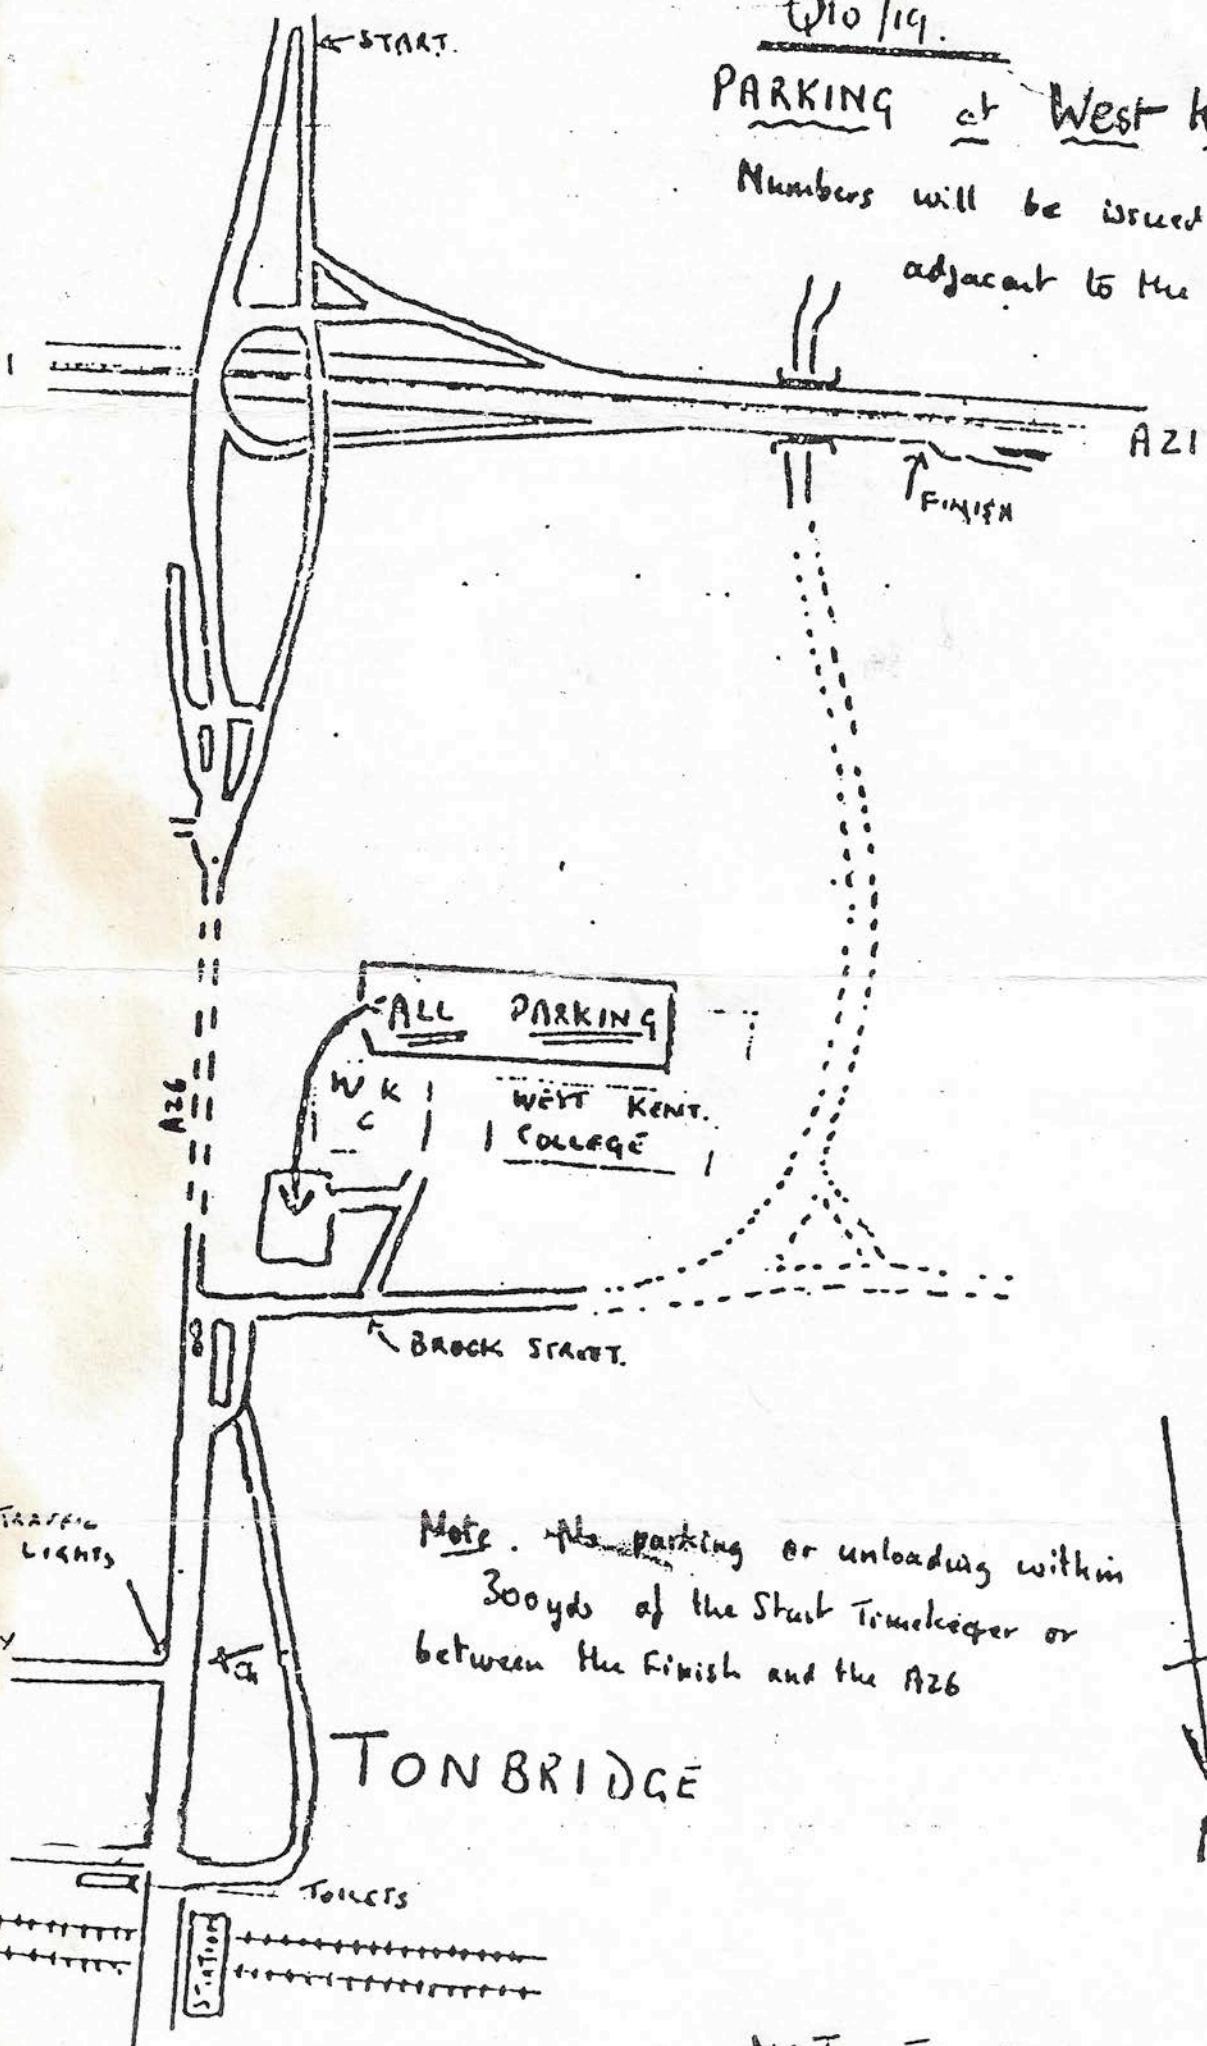 Q10/19.
← START.
PARKING at West
Numbers will be issued
adjacent to the
A21
FINISH
ALL PARKING
W K
C
WEST KENT.
COLLEGE
A26
BROCK STREET.
TRAFFIC
LIGHTS
Note. No parking or unloading within
300yds of the Start Timekeeper or
between the Finish and the A26
TONBRIDGE
TOILETS
STATION